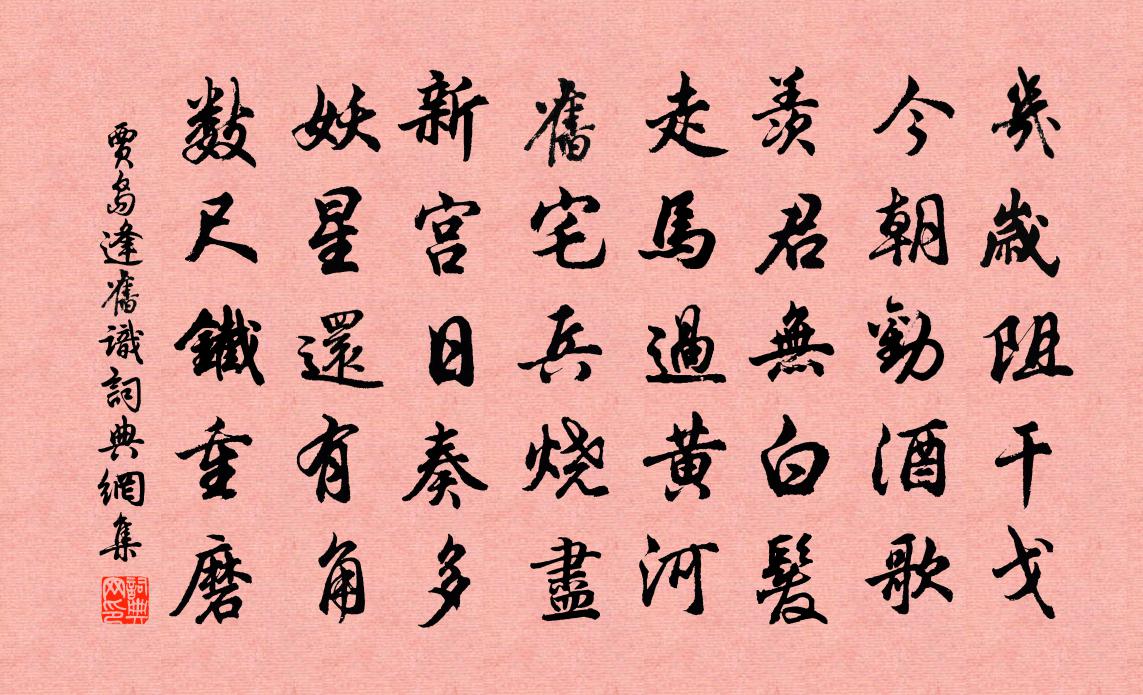 幾歲阻干戈
今朝勸酒歌
羨君無白髮
走馬過黃河
舊宅兵燒盡
新宮日奏多
妖星還有角
數尺鐵重磨
賈島逢舊識詞典網集
詞典网印